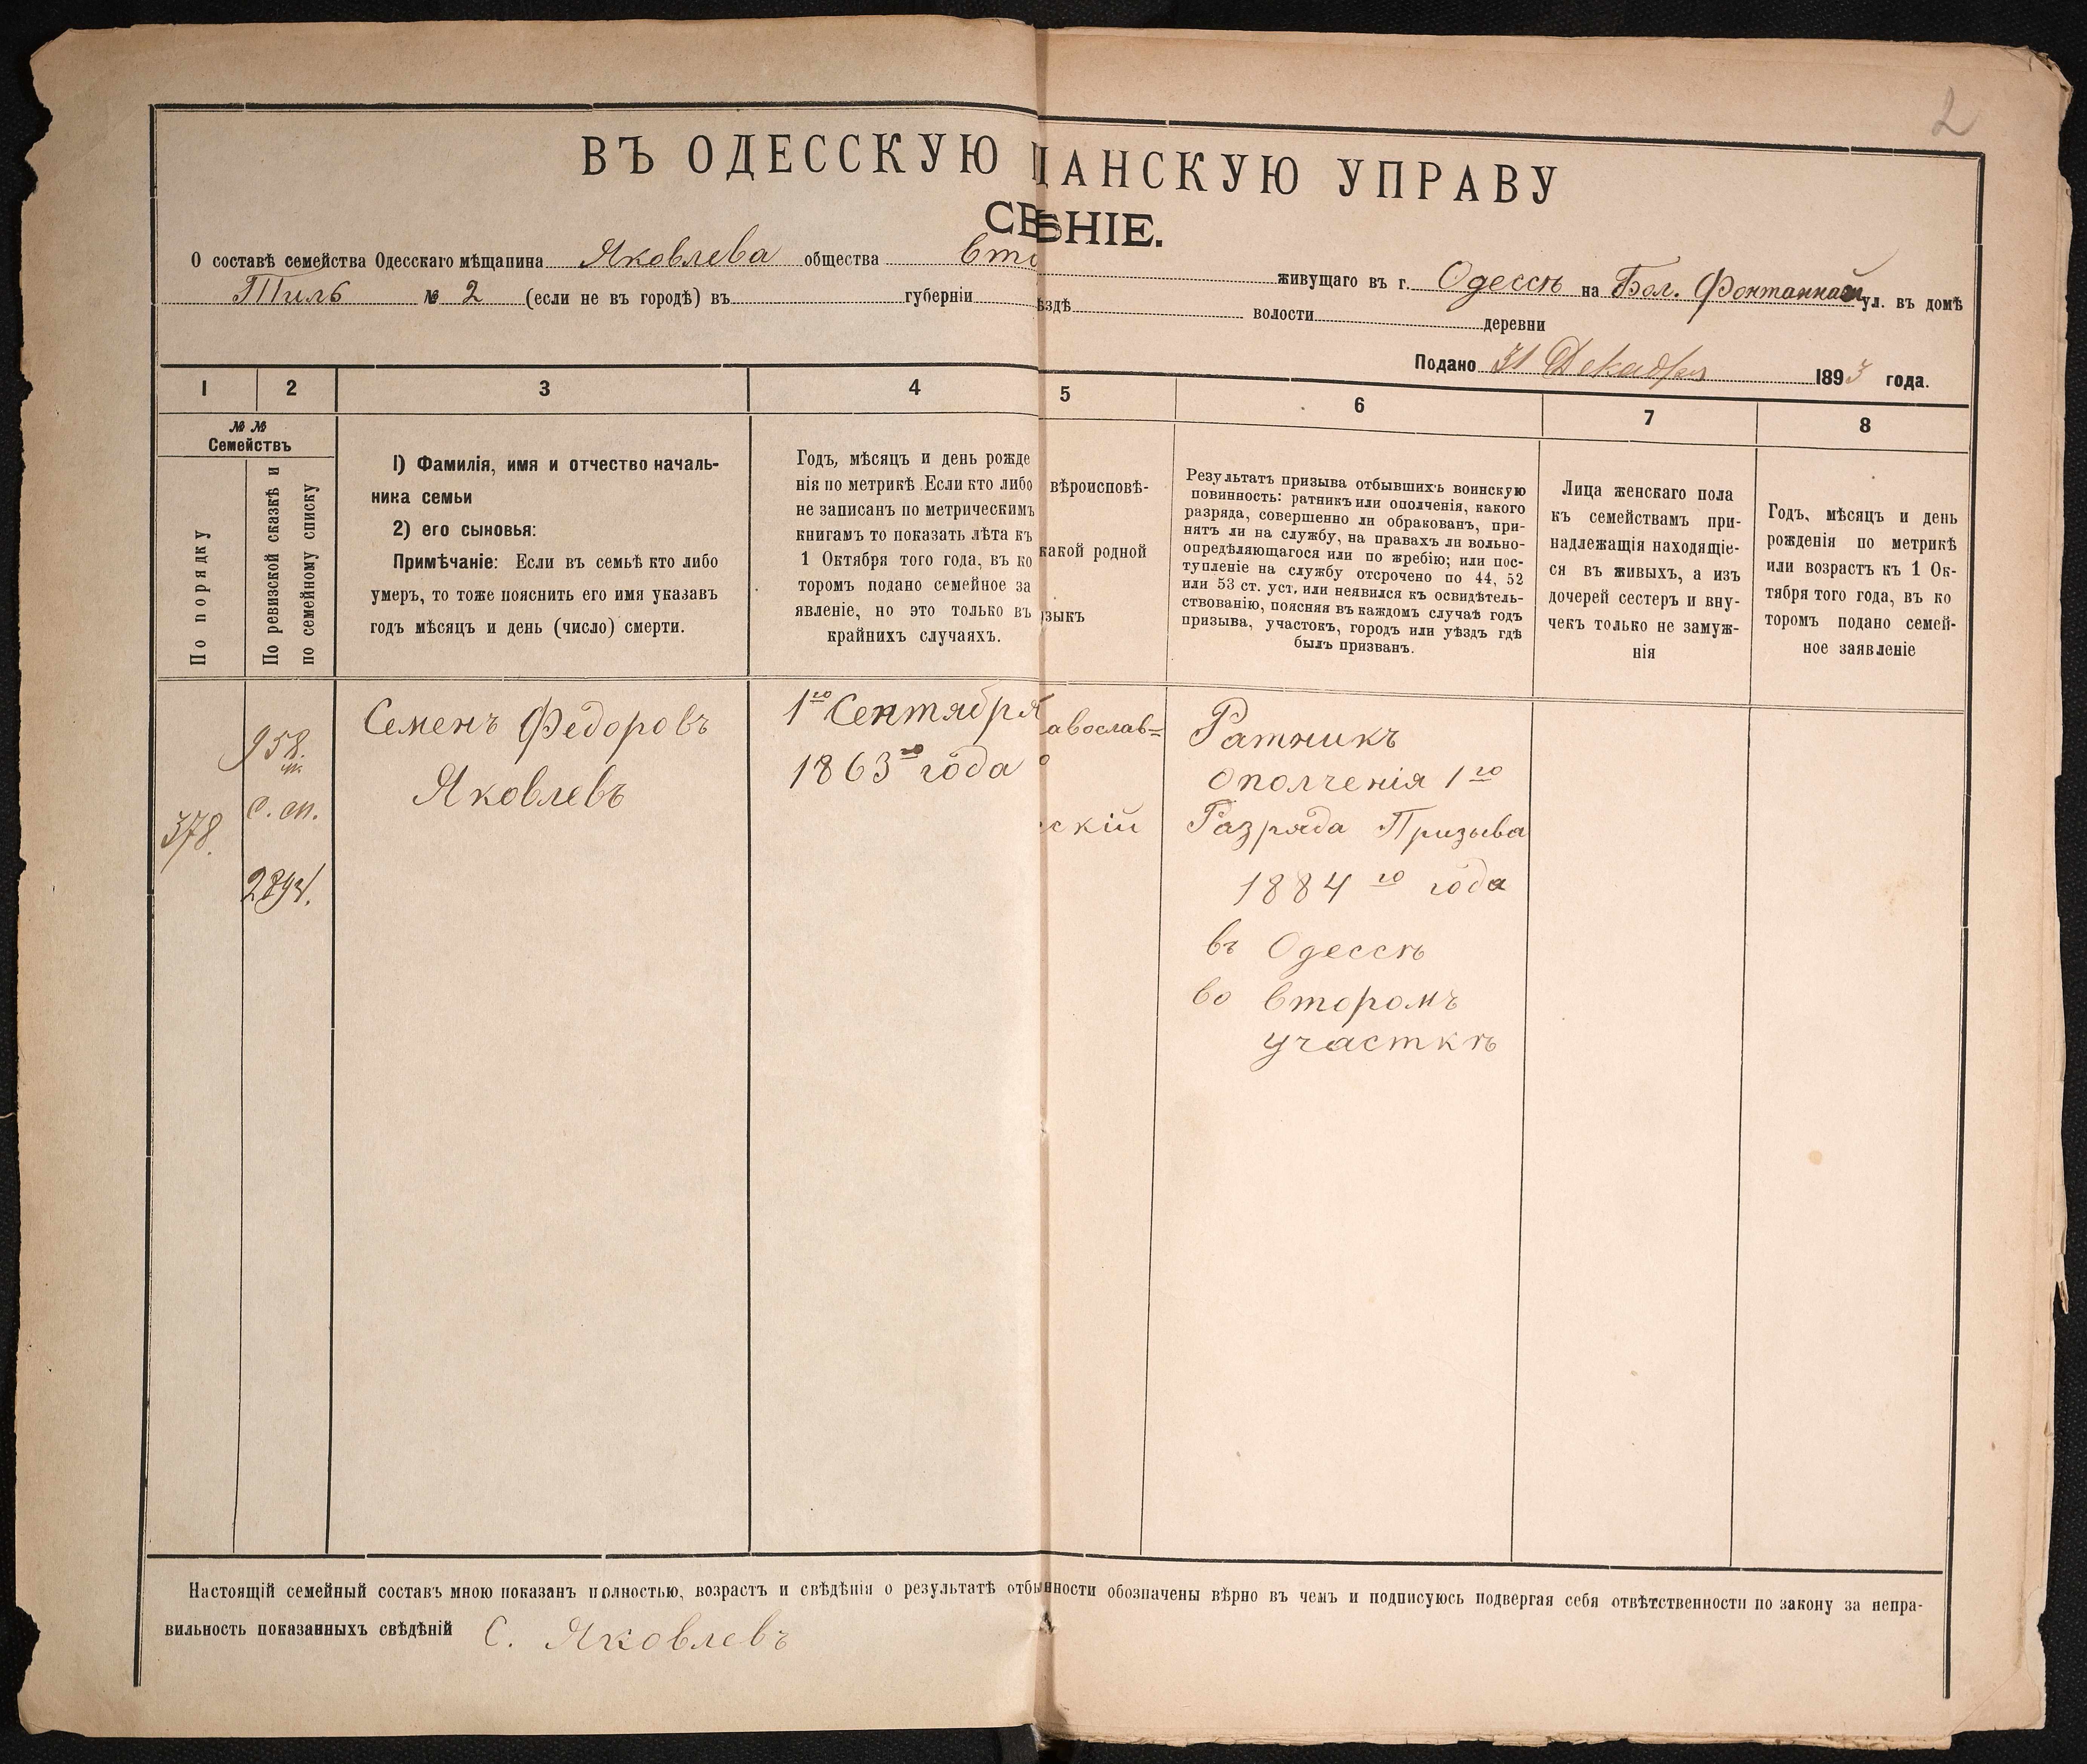 2
ВЪ ОДЕССКУЮ ЩАНСКУЮ УПРАВУ
СВѢНІЕ.
О составѣ семейства Одесскаго мѣщанина Яковлева общества вто живущаго въ г. Одессѣ на Бол. Фонтанной ул. въ домѣ
Тиль № 2 (если не въ городѣ) въ губерніи ѣздѣ волости деревни
Подано 31 Декабря 1893 года.
1 2 3 4 5 6 7 8
№ №
Семействъ
По порядку
По ревизской сказкѣ и
по семейному списку
1) Фамилія, имя и отчество началь-
ника семьи
2) его сыновья:
Примѣчаніе: Если въ семьѣ кто либо
умеръ, то тоже пояснить его имя указавъ
годъ мѣсяцъ и день (число) смерти.
Годъ, мѣсяцъ и день рожде
нія по метрикѣ Если кто либо
не записанъ по метрическимъ
книгамъ то показать лѣта къ
1 Октября того года, въ ко
торомъ подано семейное за
явленіе, но это только въ
крайнихъ случаяхъ.
вѣроисповѣ-
какой родной
зыкъ
Результатъ призыва отбывшихъ воинскую
повинность: ратникъ или ополченія, какого
разряда, совершенно ли обракованъ, при-
нятъ ли на службу, на правахъ ли вольно-
опредѣляющагося или по жребію; или пос-
тупленіе на службу отсрочено по 44, 52
или 53 ст. уст. или неявился къ освидѣтель-
ствованію, поясняя въ каждомъ случаѣ годъ
призыва, участокъ, городъ или уѣздъ гдѣ
былъ призванъ.
Лица женскаго пола
къ семействамъ при-
надлежащія находящіе-
ся въ живыхъ, а изъ
дочерей сестеръ и вну-
чекъ только не замуж-
нія
Годъ, мѣсяцъ и день
рожденія по метрикѣ
или возрастъ къ 1 Ок-
тября того года, въ ко
торомъ подано семей-
ное заявленіе
378.
958.
с. сп.
2894.
Семенъ Федоровъ
Яковлевъ
1го Сентября
1863го года
авослав=
о
скій
Ратникъ
ополченія 1го
Разряда Призыва
1884го года
въ Одессѣ
во второмъ
участкѣ
Настоящій семейный составъ мною показанъ полностью, возрастъ и свѣдѣнія о результатѣ отбынности обозначены вѣрно въ чемъ и подписуюсь подвергая себя отвѣтственности по закону за непра-
вильность показанныхъ свѣдѣній С. Яковлевъ